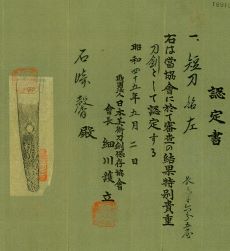 認定書
一、短刀 銘 左
長さ
右は當協會に於て審査の結果特別貴重
刀剣として認定する
昭和四十五年五月二日
財團法人日本美術刀剣保存協會
會長 細川護立
石塚 殿